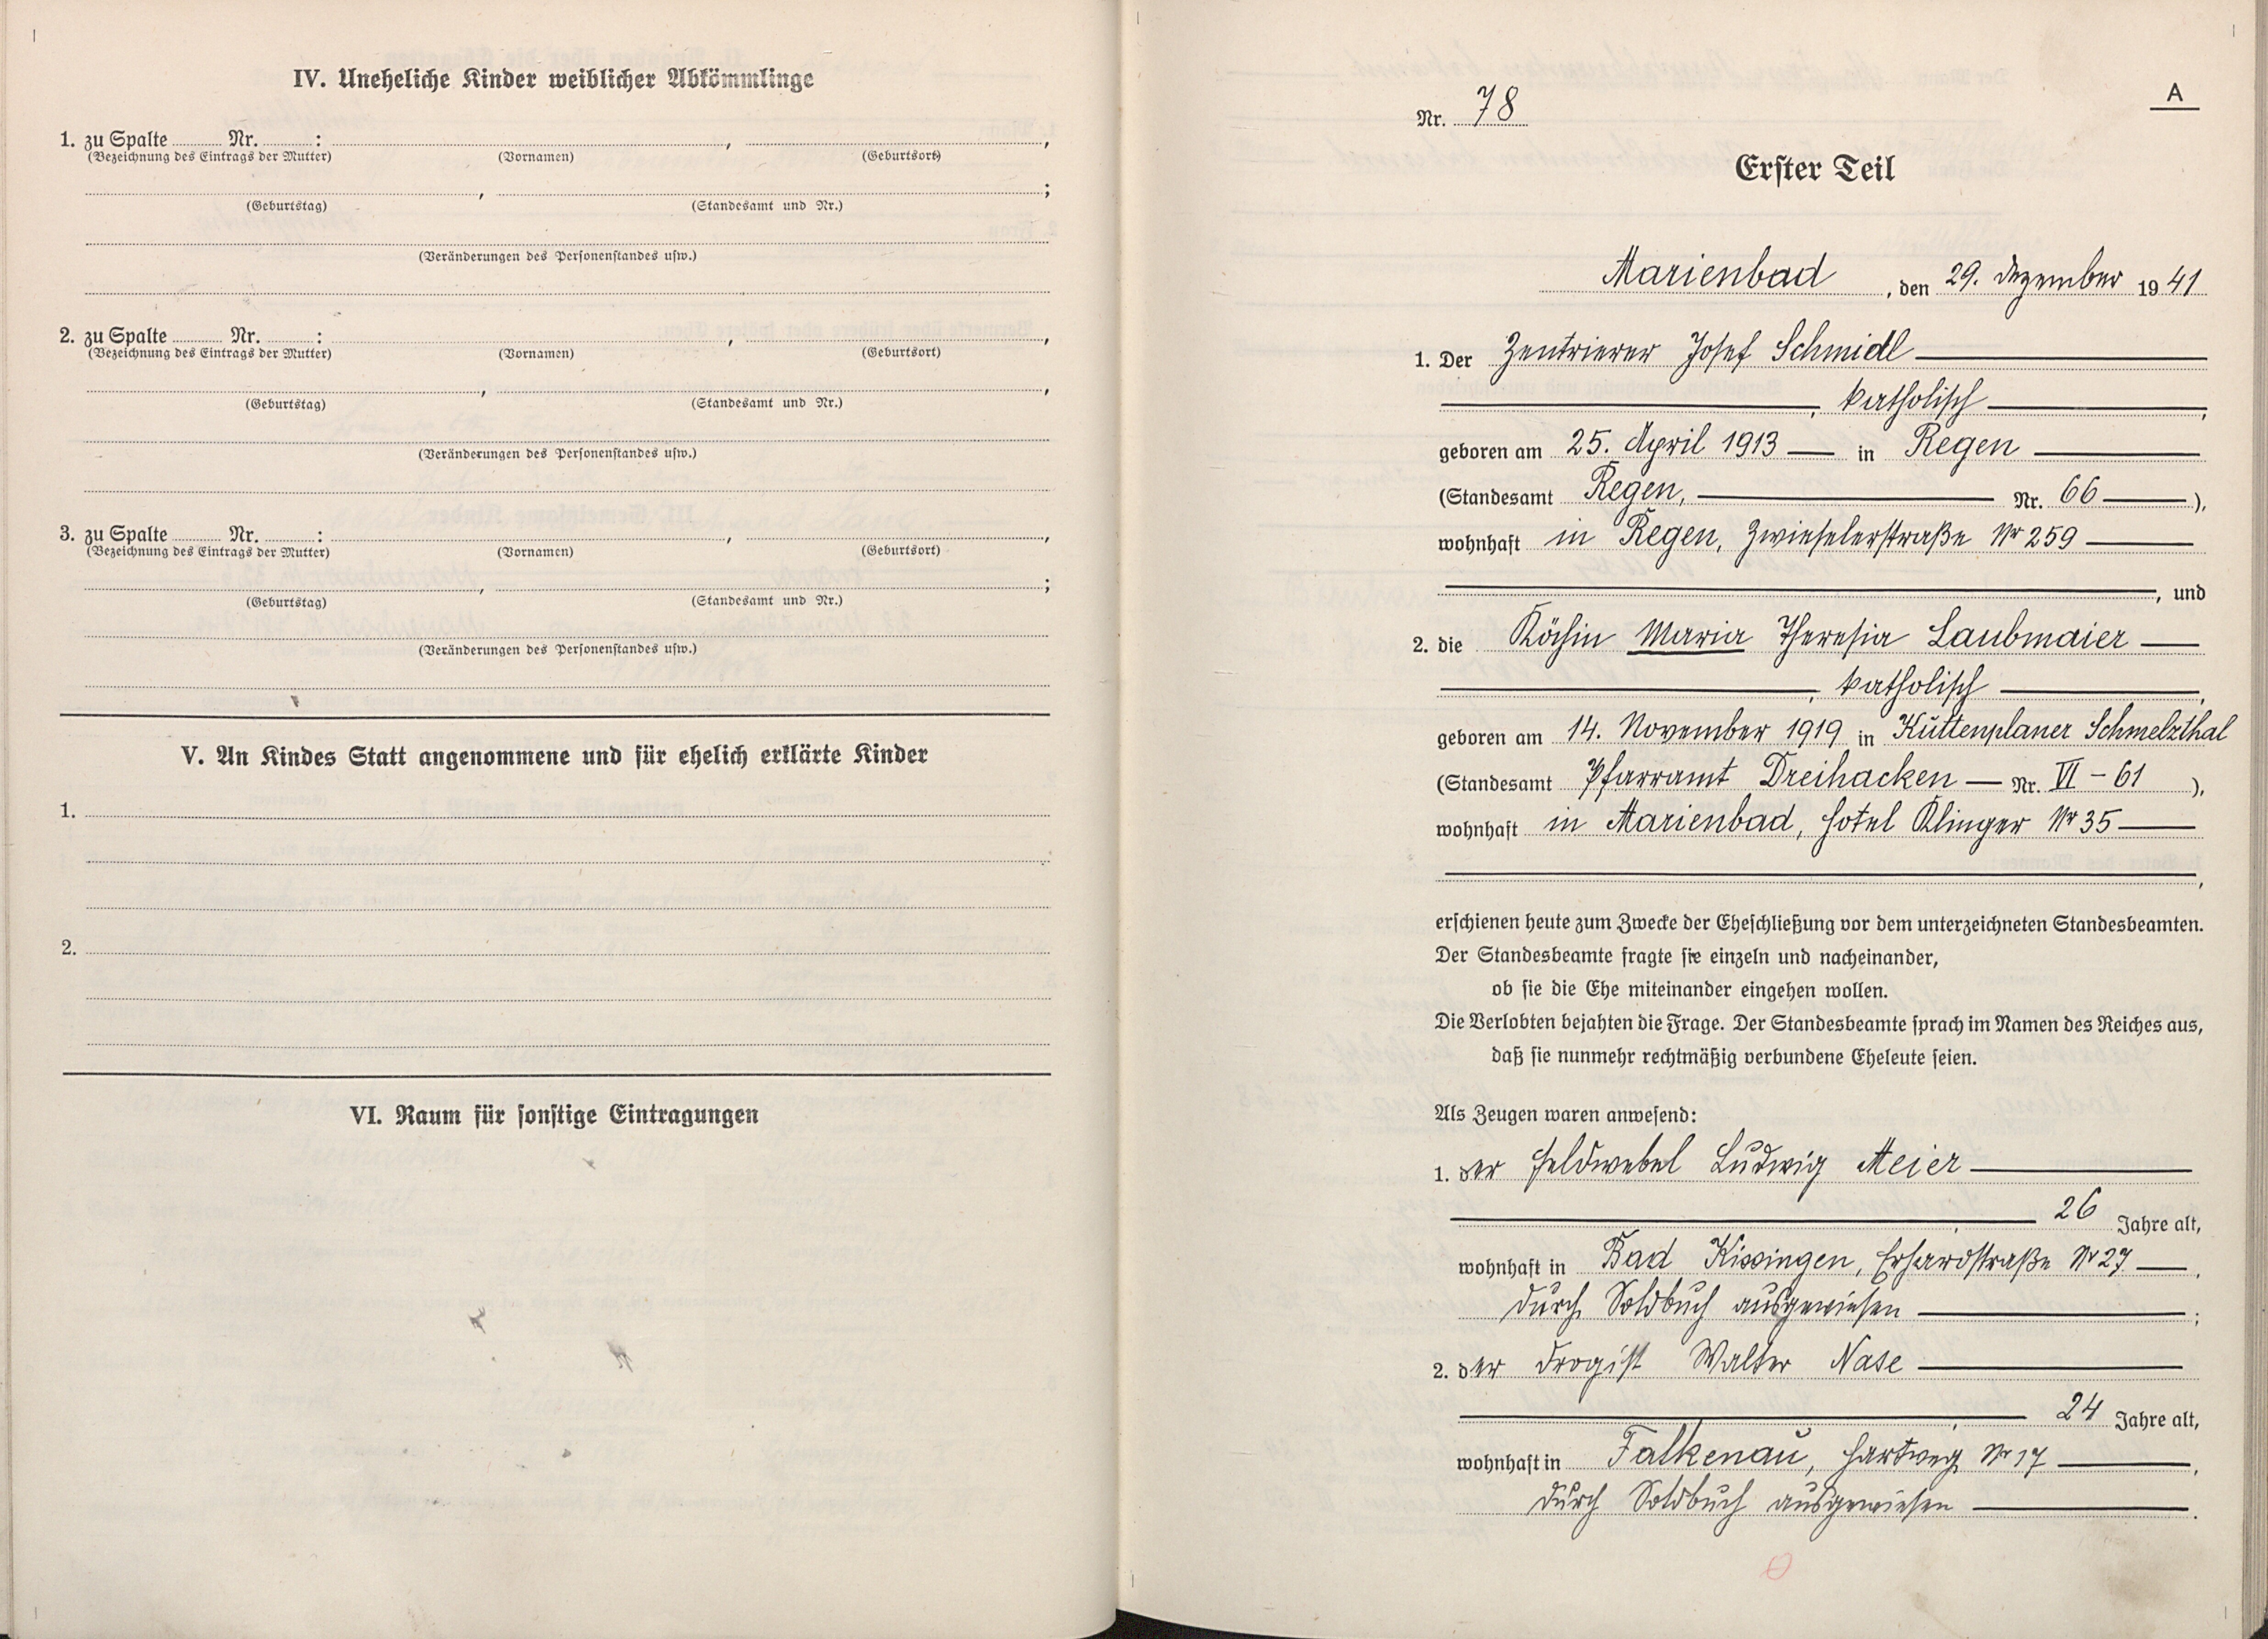 IV. Uneheliche Kinder weiblicher Abkömmlinge
1. zu Spalte Nr. : , ,
(Bezeichnung des Eintrags der Mutter) (Vornamen) (Geburtsort)
, ;
(Geburtstag) (Standesamt und Nr.)
(Veränderungen des Personenstandes usw.)
2. zu Spalte Nr. : , ,
(Bezeichnung des Eintrags der Mutter) (Vornamen) (Geburtsort)
, ,
(Geburtstag) (Standesamt und Nr.)
(Veränderungen des Personenstandes usw.)
3. zu Spalte Nr. : , ,
(Bezeichnung des Eintrags der Mutter) (Vornamen) (Geburtsort)
, ;
(Geburtstag) (Standesamt und Nr.)
(Veränderungen des Personenstandes usw.)
V. An Kindes Statt angenommene und für ehelich erklärte Kinder
1.
2.
VI. Raum für sonstige Eintragungen
A
Nr. 78
Erster Teil
Marienbad, den 29. Dezember 1941
1. Der Zentrierer Josef Schmidl
, katholisch ,
geboren am 25. April 1913 in Regen
(Standesamt Regen, Nr. 66 ),
wohnhaft in Regen, Zwieselerstraße Nr 259
, und
2. die Köchin Maria Theresia Laubmaier
, katholisch ,
geboren am 14. November 1919 in Kuttenplaner Schmelzthal
(Standesamt Pfarramt Dreihacken Nr. VI - 61 ),
wohnhaft in Marienbad, Hotel Klinger Nr 35
,
erschienen heute zum Zwecke der Eheschließung vor dem unterzeichneten Standesbeamten.
Der Standesbeamte fragte sie einzeln und nacheinander,
ob sie die Ehe miteinander eingehen wollen.
Die Verlobten bejahten die Frage. Der Standesbeamte sprach im Namen des Reiches aus,
daß sie nunmehr rechtmäßig verbundene Eheleute seien.
Als Zeugen waren anwesend:
1. der Feldwebel Ludwig Meier
, 26 Jahre alt,
wohnhaft in Bad Kissingen, Erhardstraße Nr 27 ,
durch Soldbuch ausgewiesen ;
2. der Drogist Walter Nase
, 24 Jahre alt,
wohnhaft in Falkenau, Hartweg Nr 17 ,
durch Soldbuch ausgewiesen .